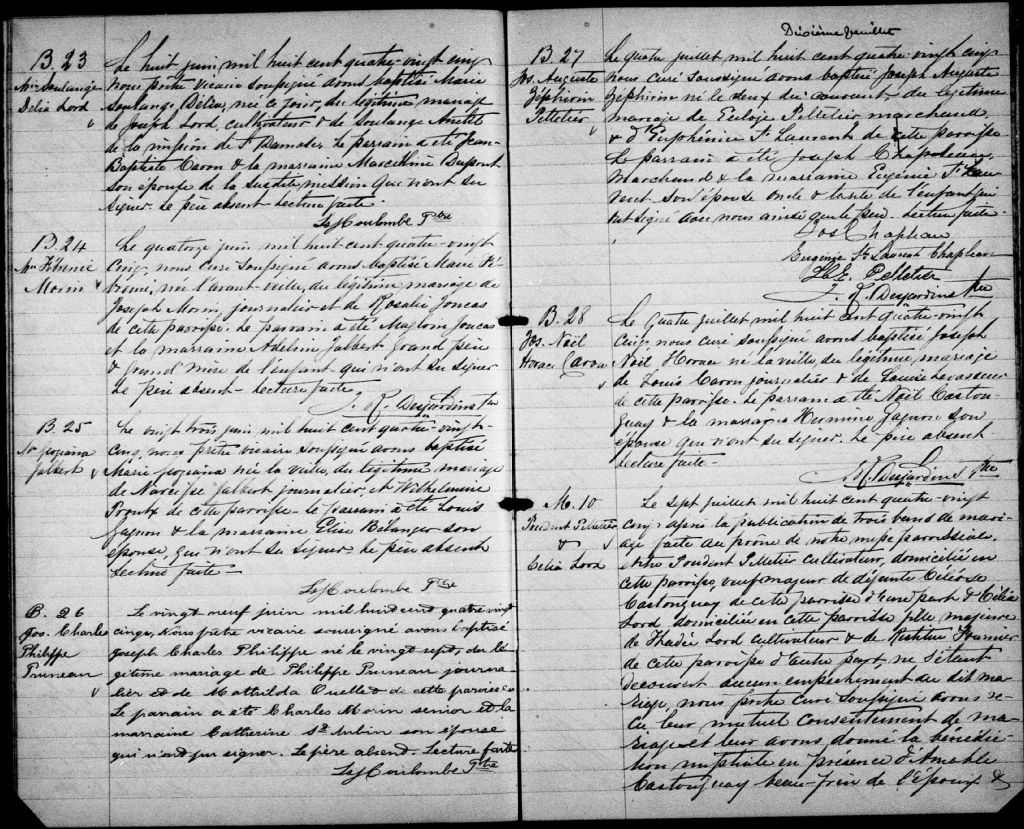 B. 23
Mie Soulange
Délia Lord
Le huit juin, mil huit cent quatre-vingt cinq
nous prêtre vicaire soussigné avons baptisé Marie
Soulange Délia, née ce jour, du légitime mariage
de Joseph Lord, cultivateur & de Soulange
de la mission de St Damase. Le parrain a été Jean-
Baptiste Caron & la marraine Marcelline Dupont
son épouse de la susdite mission qui n'ont su
signer. Le père absent. Lecture faite.
Ls J Coulombe Ptre
B. 24
Mie
Morin
Le quatorze juin mil huit-cent-quatre-vingt
cinq, nous Curé soussigné avons baptisé Marie
née l'avant-veille, du légitime mariage de
Joseph Morin, journalier et de Rosalie Joncas
de cette paroisse. Le parrain a été Magloire Joncas
et la marraine Adeline Jalbert Grand père
& grand mère de l'enfant qui n'ont su signer
Le père absent - Lecture faite
J. R. Desjardins Ptre
B. 25
Me Gorgiana
Jalbert
Le vingt trois juin, mil huit cent quatre-vingt-
cinq, nous prêtre vicaire soussigné avons baptisé
Marie Gorgiana née la veille, du légitime mariage
de Narcisse Jalbert journalier, et Wilhelmine
Proulx de cette paroisse - Le parrain a été Louis
Gagnon & la marraine Elise Bélanger son
épouse, qui n'ont su signer. Le père absent
Lecture faite
Ls J Coulombe Ptre
B. 26
Jos. Charles
Philippe
Pruneau
Le vingt neuf juin mil huit cent quatre vingt
cinq, Nous prêtre vicaire soussigné avons baptisé
Joseph Charles Philippe né le vingt sept, du lé-
gitime mariage de Philippe Pruneau journa-
lier et de Mathilda Ouellet de cette paroisse
Le parrain a été Charles Morin senior et la
marraine Catherine St Aubin son épouse
qui n'ont pu signer. Le père absent. Lecture faite
Ls J Coulombe Ptre
Dixième feuillet
B. 27
Jos. Auguste
Zéphirin
Pelletier
Le quatre juillet, mil huit cent quatre-vingt cinq
Nous curé soussigné avons baptisé Joseph Auguste
Zéphirin né le deux du courant, du légitime
mariage de Eusloge Pelletier marchand
& d'Euphénice St Laurent de cette paroisse
Le parrain a été Joseph Chapleau
Marchand & la marraine Eugénie St Lau-
rent son épouse oncle & tante de l'enfant qui
ont signé avec nous ainsi que le père. Lecture faite.
Jos Chapleau
Eugénie St Laurent Chapleau
E. Pelletier
J. R. Desjardins Ptre
B. 28
Jos. Noël
Horace Caron
Le quatre juillet mil huit cent quatre-vingt
cinq, nous curé soussigné avons baptisé Joseph
Noël Horace né la veille, du légitime mariage
de Louis Caron journalier & de Louise Levasseur
de cette paroisse. Le parrain a été Noël Caston-
guay & la marraine Hermine Gagnon son
épouse qui n'ont su signer. Le père absent
Lecture faite -
J. R. Desjardins Ptre
M. 10
Prudent Pelletier
&
Celia Lord
Le sept juillet mil huit cent quatre-vingt
cinq après la publication de trois bans de mari-
age faite au prône de notre messe paroissiale,
entre Prudent Pelletier cultivateur, domicilié en
cette paroisse, veuf majeur de défunte
Castonguay de cette paroisse d'une part & Célia
Lord domiciliée en cette paroisse fille majeure
de Thadée Lord cultivateur & de Fournier
de cette paroisse d'autre part, ne s'étant
découvert aucun empêchement au dit ma-
riage, nous prêtre curé soussigné avons re-
çu leur mutuel consentement de ma-
riage et leur avons donné la bénédic-
tion nuptiale en présence d'Aimable
Castonguay beau-frère de l'époux &